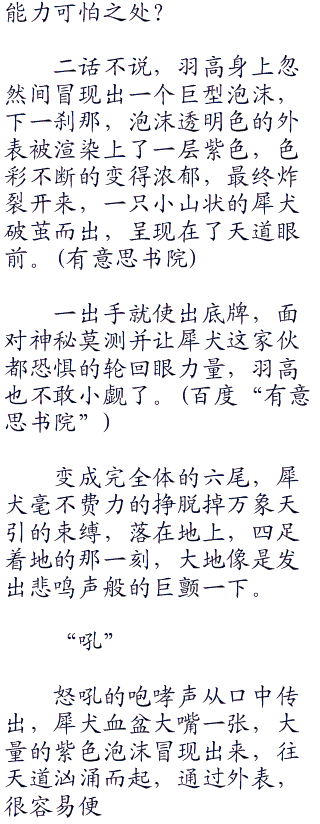 能力可怕之处？
二话不说，羽高身上忽
然间冒现出一个巨型泡沫，
下一刹那，泡沫透明色的外
表被渲染上了一层紫色，色
彩不断的变得浓郁，最终炸
裂开来，一只小山状的犀犬
破茧而出，呈现在了天道眼
前。（有意思书院）
一出手就使出底牌，面
对神秘莫测并让犀犬这家伙
都恐惧的轮回眼力量，羽高
也不敢小觑了。（百度“有意
思书院”）
变成完全体的六尾，犀
犬毫不费力的挣脱掉万象天
引的束缚，落在地上，四足
着地的那一刻，大地像是发
出悲鸣声般的巨颤一下。
“吼”
怒吼的咆哮声从口中传
出，犀犬血盆大嘴一张，大
量的紫色泡沫冒现出来，往
天道汹涌而起，通过外表，
很容易便